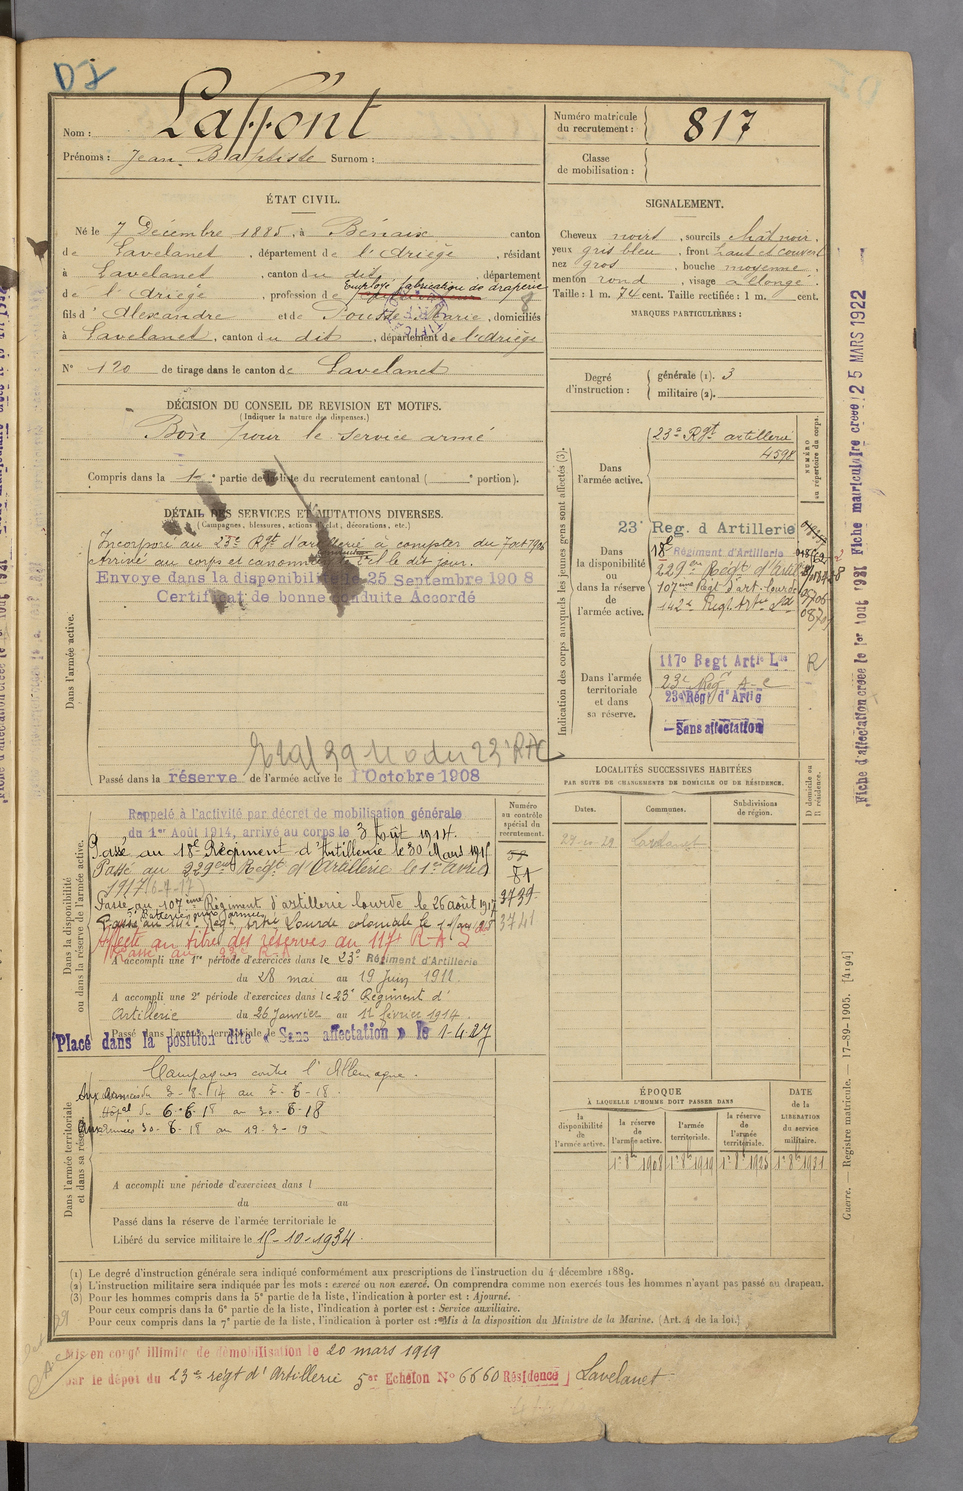 DJ
Nom : Laffont
Prénoms : Jean Baptiste Surnom :
Numéro matricule du recrutement : 817
Classe de mobilisation :
ÉTAT CIVIL.
Né le 7 Décembre 1885, à Bénaix canton
de Lavelanet, département de l'Ariège, résidant
à Lavelanet, canton du dit, département
Employé fabrication de draperie
de l'Ariège, profession de
fils d'Alexandre et de Pousse Marie, domiciliés
à Lavelanet, canton du dit, département de l'Ariège
N° 120 de tirage dans le canton de Lavelanet
SIGNALEMENT.
Cheveux noirs, sourcils chât noir,
yeux gris bleu, front haut et couvert
nez gros, bouche moyenne,
menton rond, visage allongé.
Taille : 1 m. 74 cent. Taille rectifiée : 1 m. cent.
MARQUES PARTICULIÈRES :
Degré d'instruction : générale (1). 3
militaire (2).
DÉCISION DU CONSEIL DE REVISION ET MOTIFS.
(Indiquer la nature des dispenses.)
Bon pour le service armé
Compris dans la 1e partie de la liste du recrutement cantonal ( e portion).
DÉTAIL DES SERVICES ET MUTATIONS DIVERSES.
(Campagnes, blessures, actions d'éclat, décorations, etc.)
Dans l'armée active.
Incorporé au 23e Rgt d'artillerie à compter du 7 oct 1906
Arrivé au corps et canonnier le dit jour.
Envoyé dans la disponibilité le 25 Septembre 1908
Certificat de bonne conduite Accordé
Passé dans la réserve de l'armée active le 1 Octobre 1908
Indication des corps auxquels les jeunes gens sont affectés (3).
NUMÉRO au répertoire du corps.
Dans l'armée active.
23e Rgt artillerie
4598
Dans la disponibilité ou dans la réserve de l'armée active.
23e Reg. d Artillerie
18e Régiment d'Artillerie
229ème Régt d'Artil
107ème Régt d'art. lourde
142e Regt Art
Dans l'armée territoriale et dans sa réserve.
117e Regt Artie Lde
R
23e Reg A-C
23e Régt d'Artie
Sans affectation
LOCALITÉS SUCCESSIVES HABITÉES
PAR SUITE DE CHANGEMENTS DE DOMICILE OU DE RÉSIDENCE.
Dates. Communes. Subdivisions de région. D domicile ou R résidence.
Lavelanet
Dans la disponibilité ou dans la réserve de l'armée active.
Numéro au contrôle spécial du recrutement.
Rappelé à l'activité par décret de mobilisation générale
du 1er Août 1914, arrivé au corps le 3 Août 1914.
Passé au 18e Régiment d'Artillerie le 30 Mars 1915
Passé au 229ème Régt d'Artillerie le 1er Avril
1917
81
Passé au 107ème Régiment d'artillerie lourde le 26 août 1917
3739
Passé au 142e Regt Artie Lourde coloniale le
3741
Affecté au titre des réserves au 117e R-A-L
Passé au 23e R.A
A accompli une 1re période d'exercices dans le 23e Régiment d'Artillerie
du 28 mai au 19 Juin 1911
A accompli une 2e période d'exercices dans le 23e Régiment d'
Artillerie du 26 Janvier au 11 février 1914.
Passé dans l'armée territoriale le
Placé dans la position dite « Sans affectation » le 1-4-27
Dans l'armée territoriale et dans sa réserve.
Campagnes contre l'Allemagne.
Aux armées du 3-8-14 au 5-6-18.
Hôpal du 6-6-18 au 30-6-18
Aux armées 30-6-18 au 19-3-19
A accompli une période d'exercices dans l
du au
Passé dans la réserve de l'armée territoriale le
Libéré du service militaire le 15-10-1934.
ÉPOQUE
À LAQUELLE L'HOMME DOIT PASSER DANS
la disponibilité de l'armée active.
la réserve de l'armée active.
l'armée territoriale.
la réserve de l'armée territoriale.
DATE de la LIBÉRATION du service militaire.
1r 8bre 1908 1r 8bre 1919 1r 8bre 1925 1r 8bre 1931
(1) Le degré d'instruction générale sera indiqué conformément aux prescriptions de l'instruction du 4 décembre 1889.
(2) L'instruction militaire sera indiquée par les mots : exercé ou non exercé. On comprendra comme non exercés tous les hommes n'ayant pas passé au drapeau.
(3) Pour les hommes compris dans la 5e partie de la liste, l'indication à porter est : Ajourné.
Pour ceux compris dans la 6e partie de la liste, l'indication à porter est : Service auxiliaire.
Pour ceux compris dans la 7e partie de la liste, l'indication à porter est : Mis à la disposition du Ministre de la Marine. (Art. 4 de la loi.)
Mis en congé illimité de démobilisation le 20 mars 1919
par le dépôt du 23e régt d'Artillerie 5er Echelon N° 6660 Résidence Lavelanet
Guerre. — Registre matricule. — 17-89-1905. [4194]
Fiche d'affectation créée le 1er Aout 1921 Fiche matriculaire créée 25 MARS 1922